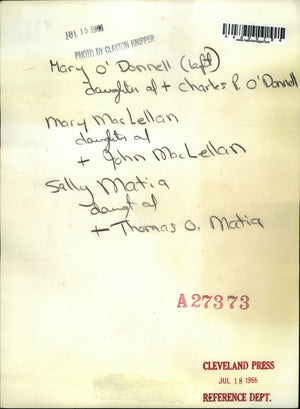 JUL 15 1966
PHOTO BY CLAYTON KNIPPER
Mary O'Donnell (left)
daughter of + Charles P. O'Donnell
Mary MacLellan
daughter of
+ John MacLellan
Sally Matia
daught of
+ Thomas O. Matia
A27373
CLEVELAND PRESS
JUL 18 1966
REFERENCE DEPT.